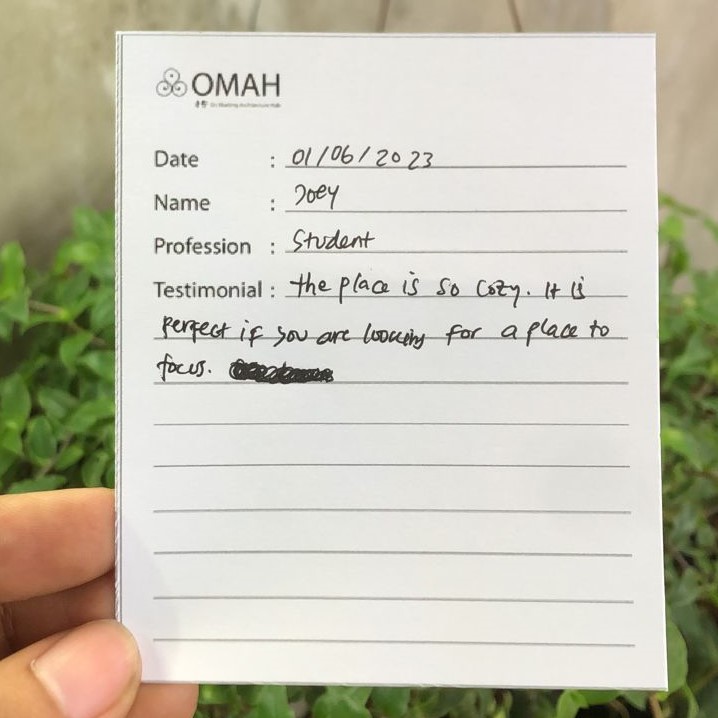 OMAH
Date : 01/06/2023
Name : Joey
Profession : Student
Testimonial : the place is so cozy. It is
perfect if you are looking for a place to
focus.